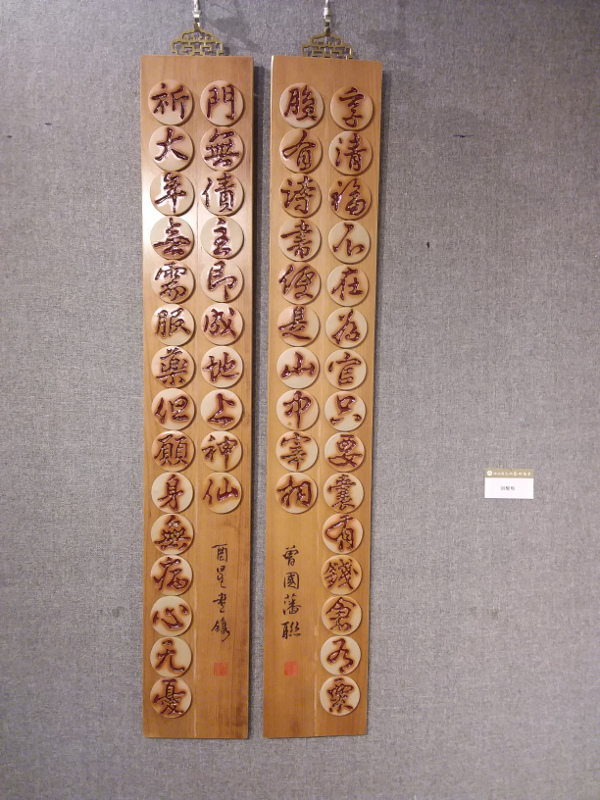 享清福不在为官只要囊有錢倉有粟
腹有诗書便是山中宰相
曾國藩聯
祈大年無需服藥但願身無病心无憂
門無債主即成地上神仙
酉星書